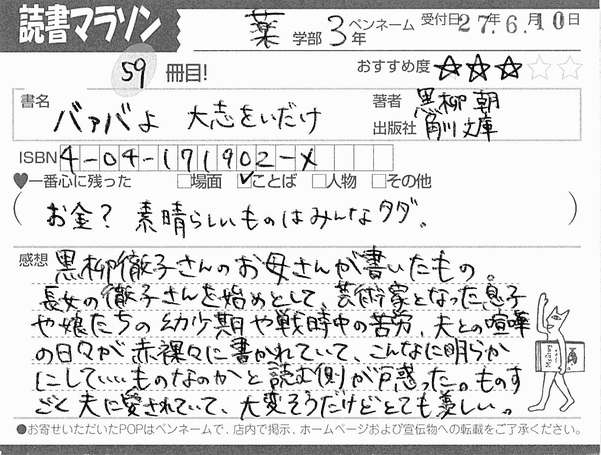 読書マラソン
薬 学部 3年 ペンネーム 受付日 27年 6月 10日
59 冊目! おすすめ度 ★★★☆☆
書名 バァバよ 大志をいだけ 著者 黒柳 朝
出版社 角川文庫
ISBN 4-04-171902-X
♥一番心に残った □場面 ☑ことば □人物 □その他
(お金? 素晴らしいものはみんなタダ。)
感想 黒柳徹子さんのお母さんが書いたもの。
長女の徹子さんを始めとして、芸術家となった息子
や娘たちの幼少期や戦時中の苦労、夫との喧嘩
の日々が赤裸々に書かれていて、こんなに明らか
にしていいものなのかと読む側が戸惑った。ものす
ごく夫に愛されていて、大変そうだけどとても羨しい。
●お寄せいただいたPOPはペンネームで、店内で掲示、ホームページおよび宣伝物への転載をご了承ください。